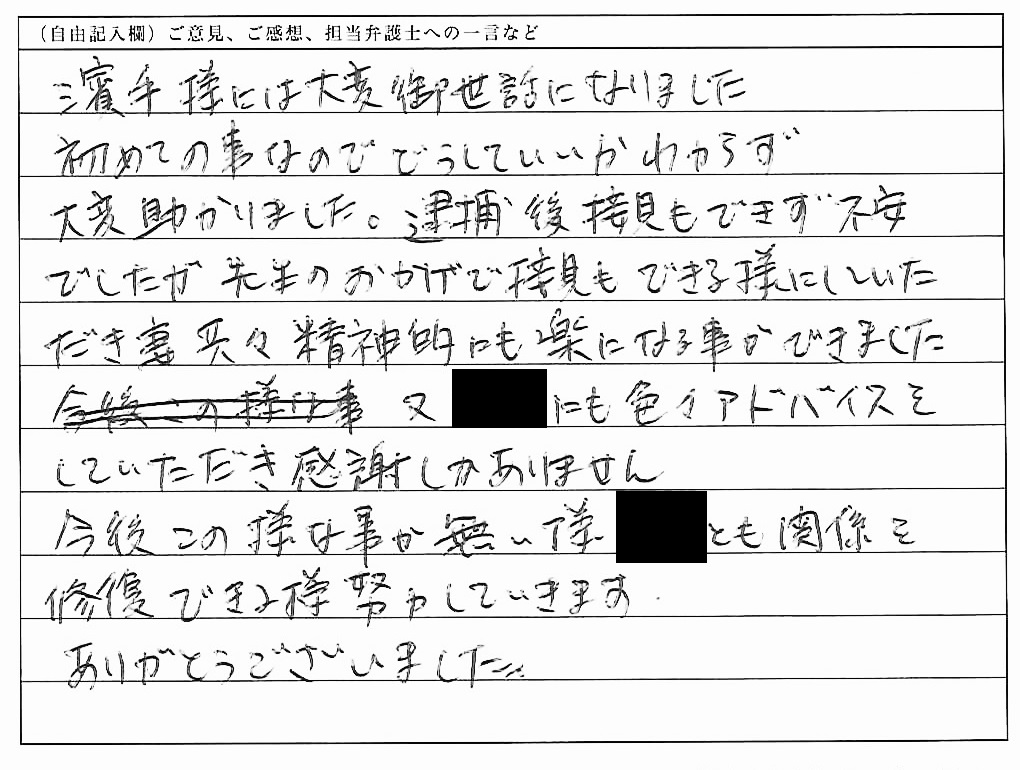 （自由記入欄）ご意見、ご感想、担当弁護士への一言など
濱手様には大変御世話になりました
初めての事なのでどうしていいかわからず
大変助かりました。逮捕後接見もできず不安
でしたが先生のおかげで接見もできる様にしていた
だき妻共々精神的にも楽になる事ができました
今後この様な事 又 にも色々アドバイスを
していただき感謝しかありません
今後この様な事が無い様 とも関係を
修復できる様努力していきます
ありがとうございました